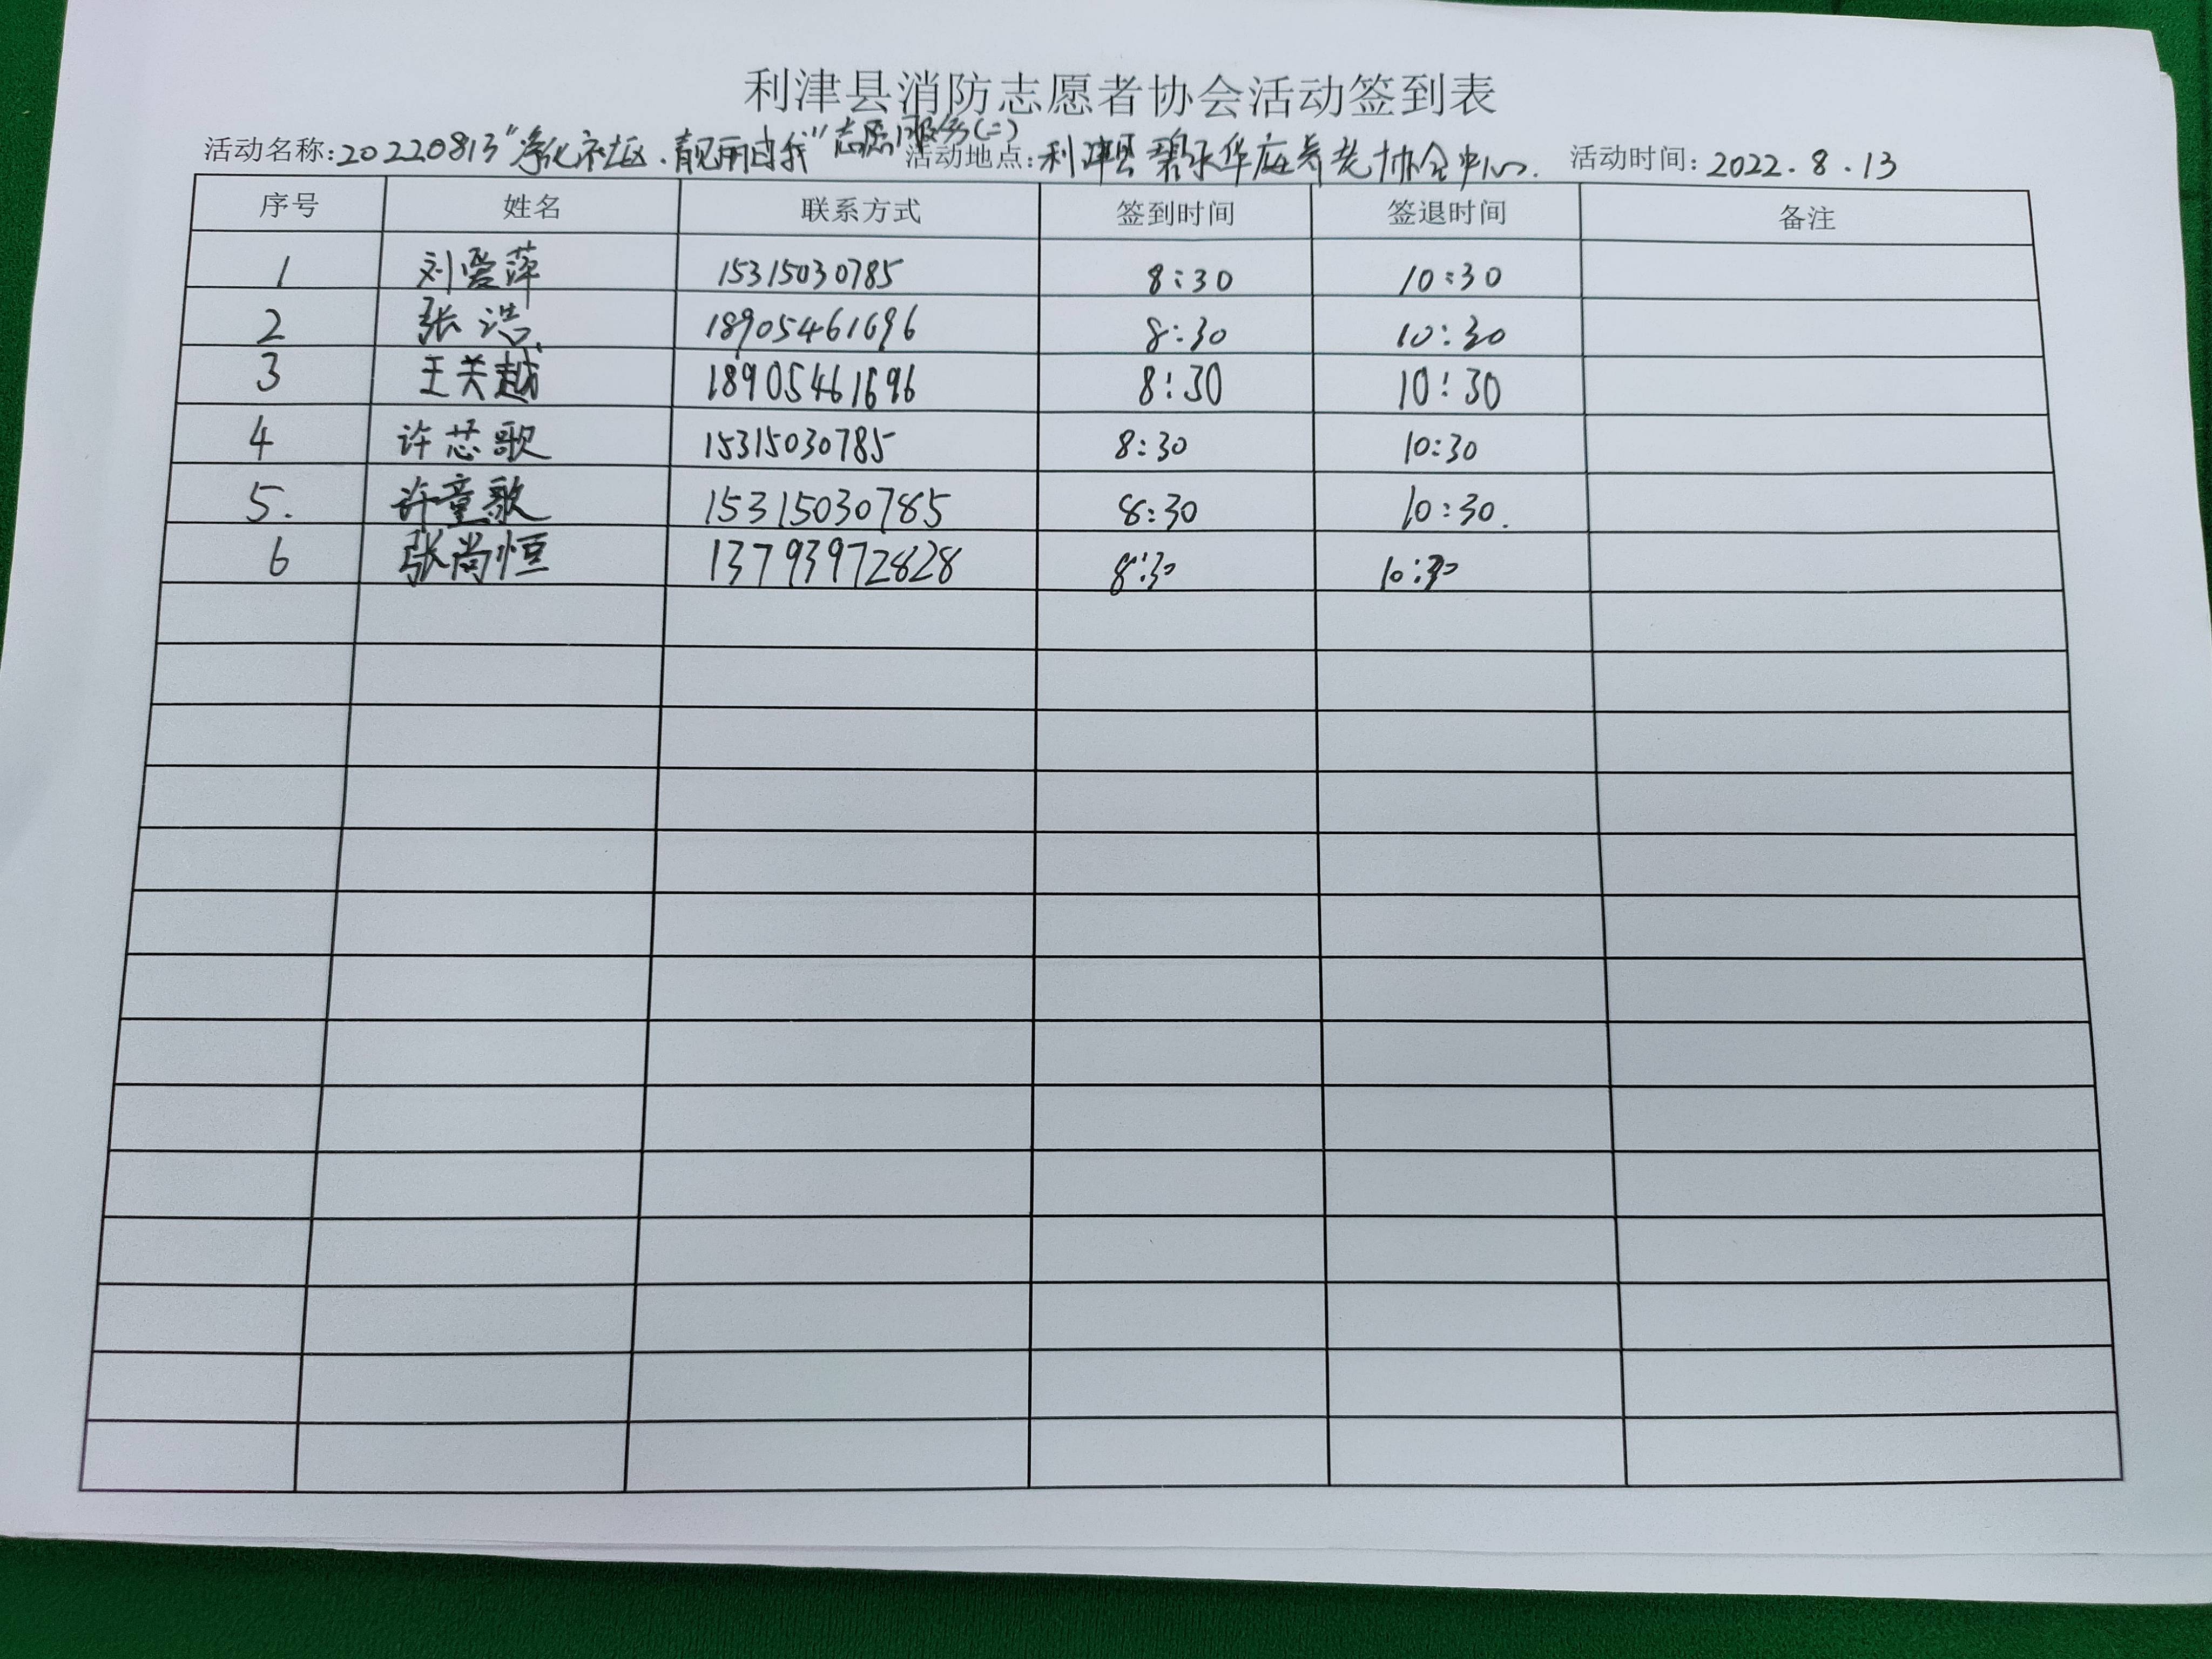 利津县消防志愿者协会活动签到表
活动名称:20220813"净化社区.靓丽自我"志愿服务(二) 活动地点:利津县碧水华庭养老协会中心. 活动时间:2022.8.13
序号 姓名 联系方式 签到时间 签退时间 备注
1 刘爱萍 15315030785 8:30 10:30
2 张浩 18905461696 8:30 10:30
3 王关越 18905461696 8:30 10:30
4 许芯歌 15315030785 8:30 10:30
5. 许童歌 15315030785 8:30 10:30.
6 张尚恒 13793972828 8:30 10:30